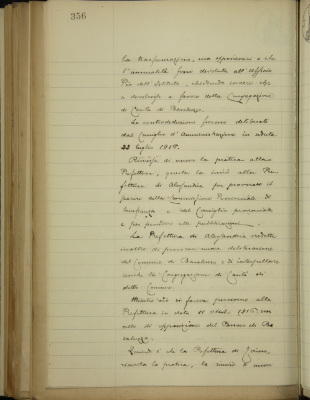 356
la trasformazione, ma opponevasi a che
l'annualità fosse devoluta all'Ufficio
Pio dell'Istituto, chiedendo invece che
si devolvesse a favore della Congregazione
di Carità di Basaluzzo.
Le controdeduzioni furono deliberate
dal Consiglio d'Amministrazione in seduta
22 luglio 1915.
Rinviata di nuovo la pratica alla
Prefettura, questa la inviò alla Pre-
fettura di Alessandria per provocare il
parere della Commissione Provinciale di
beneficenza e del Consiglio provinciale
e per prendere alle pubblicazioni.
La Prefettura di Alessandria credette
inoltre di provocare nuova deliberazione
del Comune di Basaluzzo e di interpellare
anche la Congregazione di Carità di
detto Comune.
Mentre ciò si faceva pervenne alla
Prefettura in data 11 1915 un
atto di opposizione del Comune di Ba-
saluzzo.
Quindi è che la Prefettura di Torino,
riavuta la pratica, la inviò di nuovo